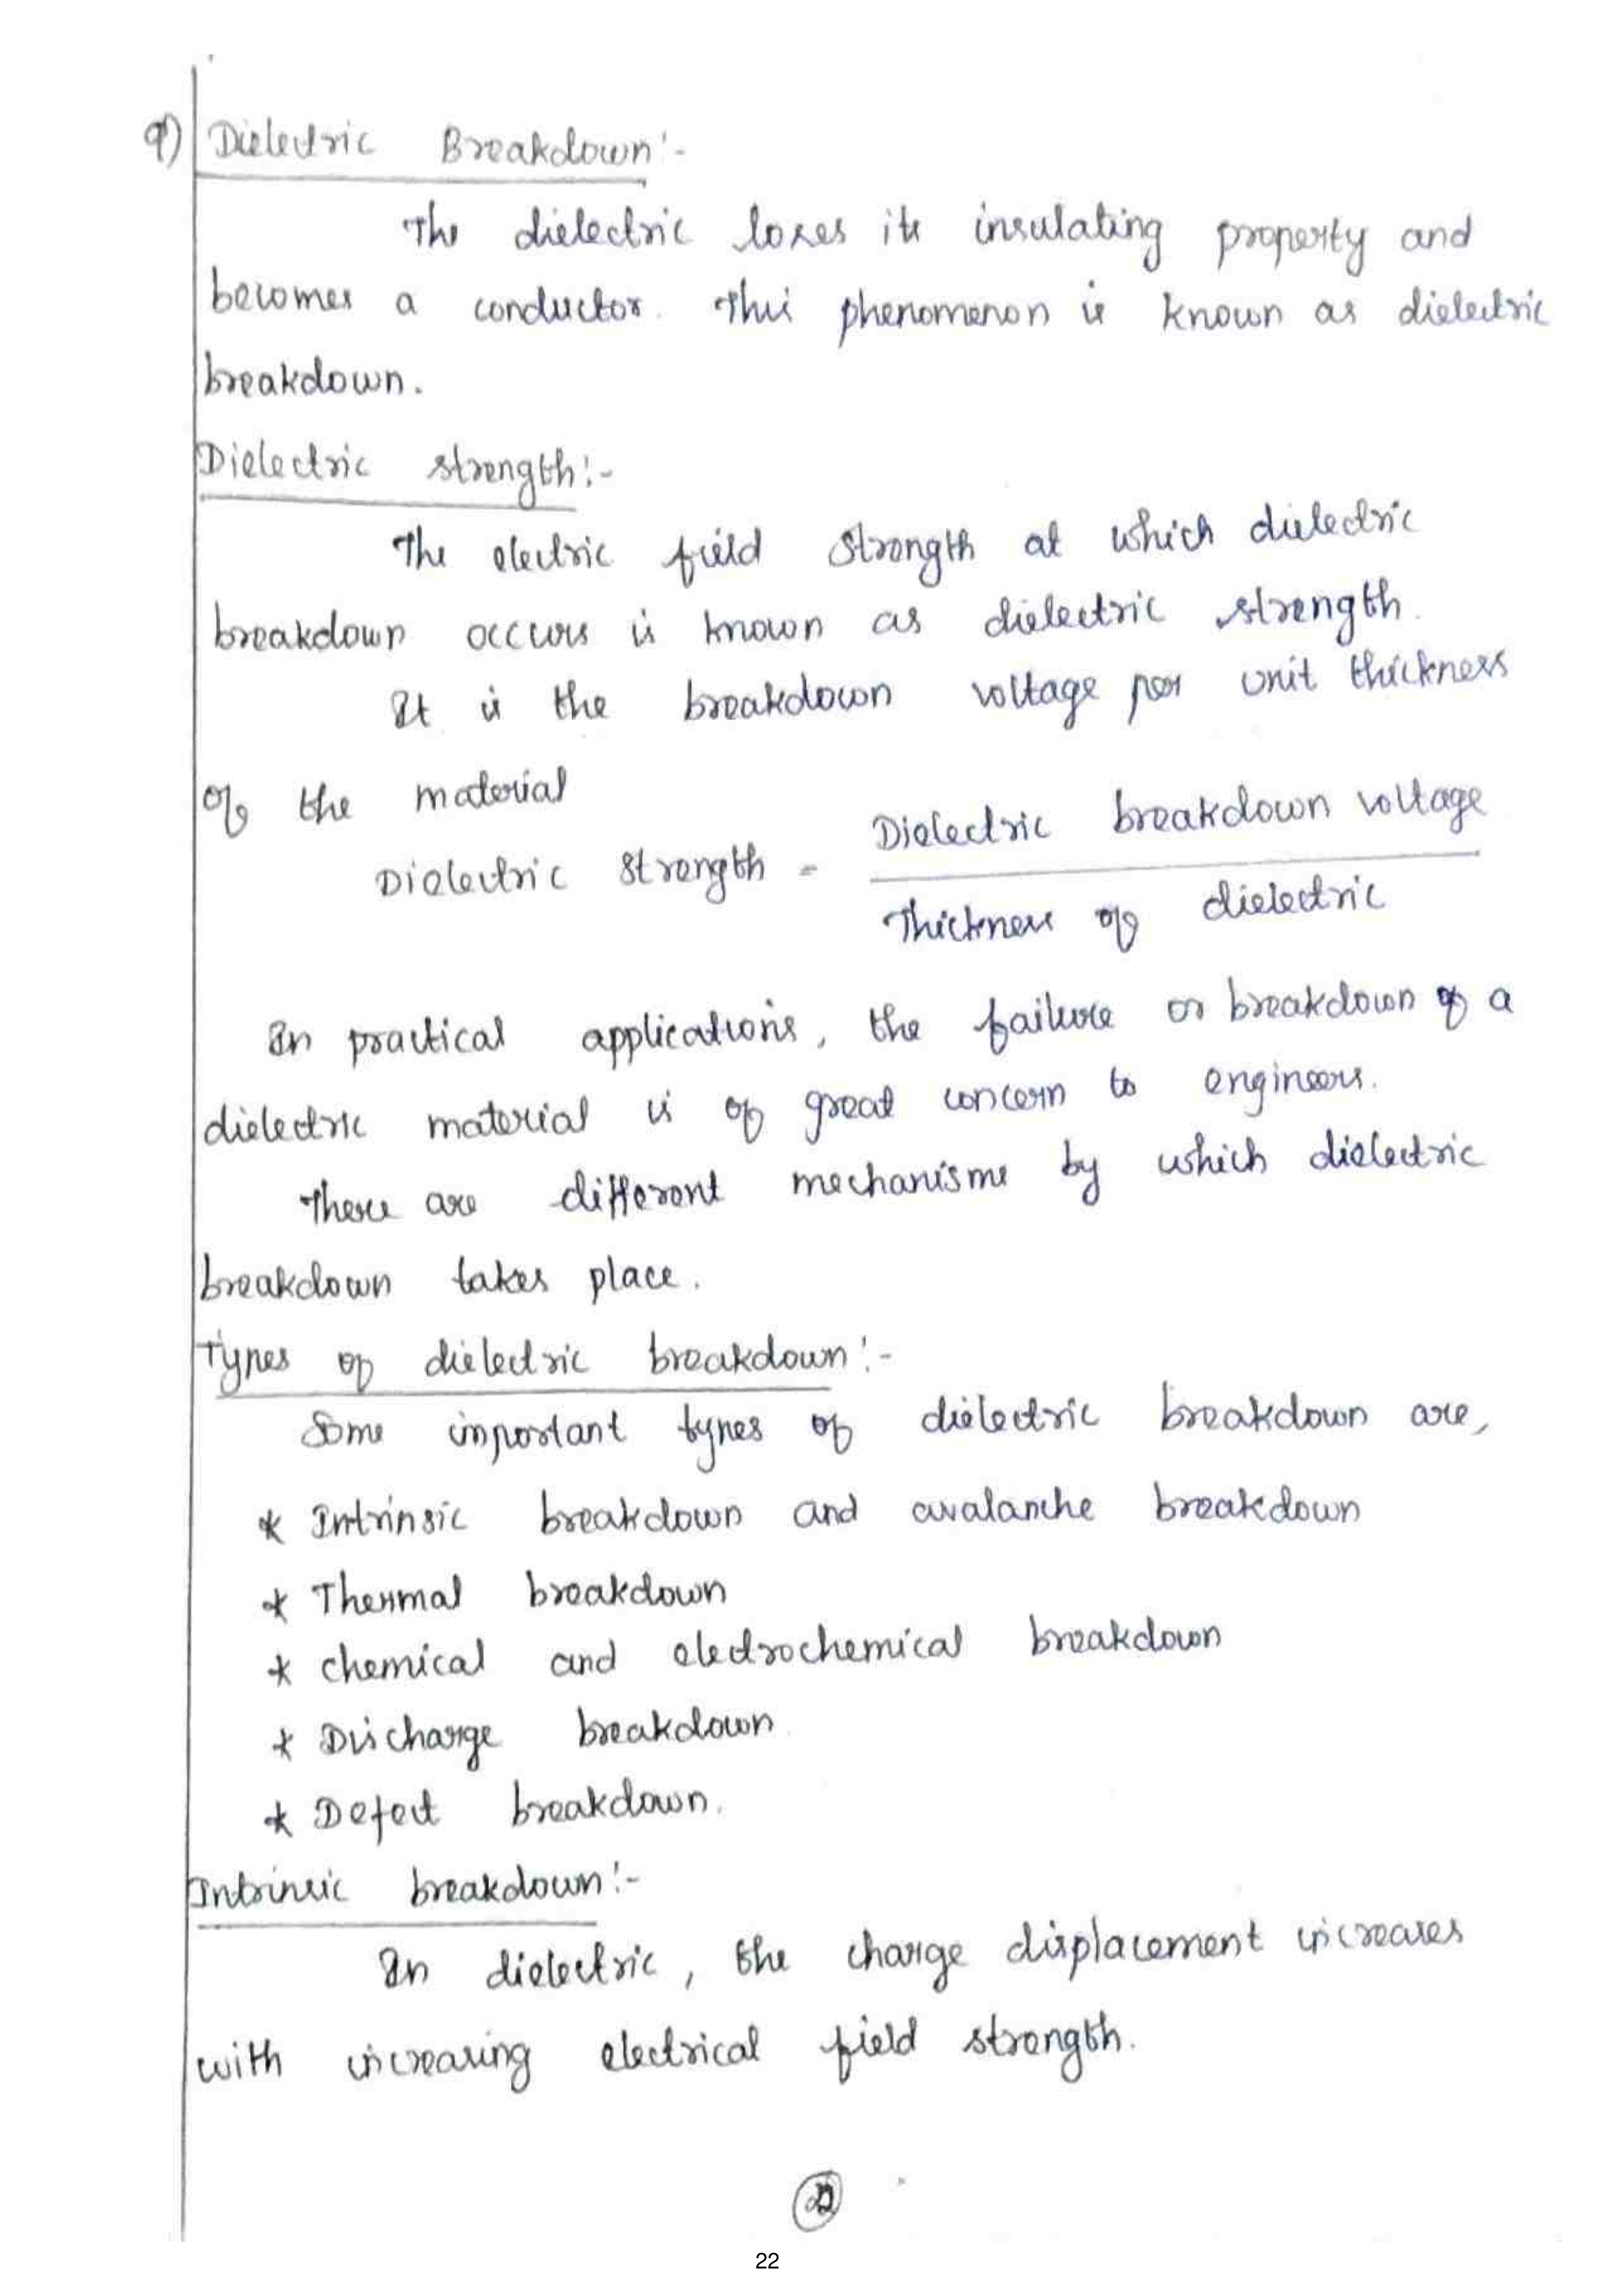 9) Dielectric Breakdown:-
The dielectric loses its insulating property and
becomes a conductor. This phenomenon is known as dielectric
breakdown.
Dielectric strength:-
The electric field strength at which dielectric
breakdown occurs is known as dielectric strength.
It is the breakdown voltage per unit thickness
of the material
Dielectric strength = Dielectric breakdown voltage
Thickness of dielectric
In practical applications, the failure or breakdown of a
dielectric material is of great concern to engineers.
There are different mechanisms by which dielectric
breakdown takes place.
Types of dielectric breakdown:-
Some important types of dielectric breakdown are,
* Intrinsic breakdown and avalanche breakdown
* Thermal breakdown
* chemical and electrochemical breakdown
* Discharge breakdown
* Defect breakdown.
Intrinsic breakdown:-
In dielectric, the charge displacement increases
with increasing electrical field strength.
22